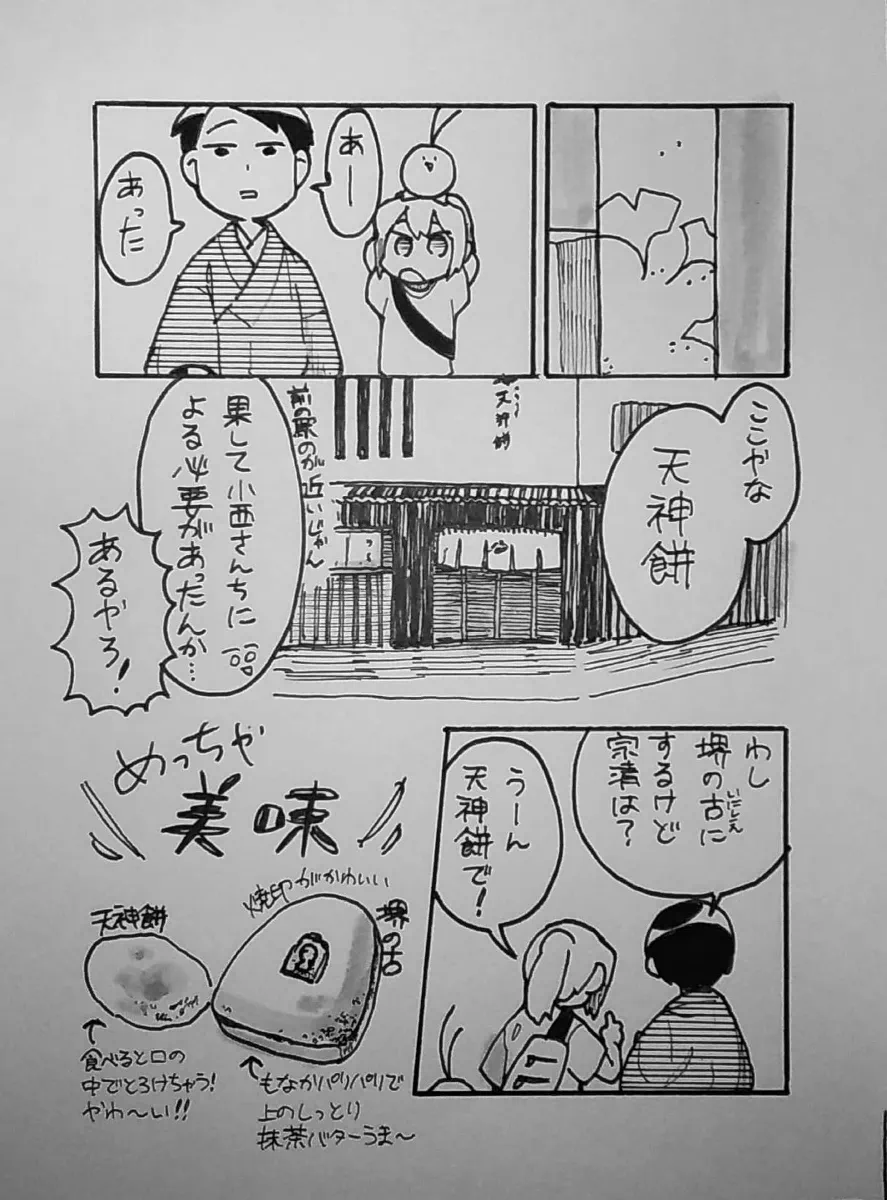 あー
あった
ここやな
天神餅
天神餅
前の駅のが近いじゃん
果して小西さんちに
よる必要があったんか…
あるやろ!
わし
堺の古に
いにしえ
するけど
宗清は?
うーん
天神餅で!
めっちゃ
美味
焼印がかわいい
堺の古
天神餅
食べると口の
中でとろけちゃう!
やわ〜い!!
もなかパリパリで
上のしっとり
抹茶バターうま〜